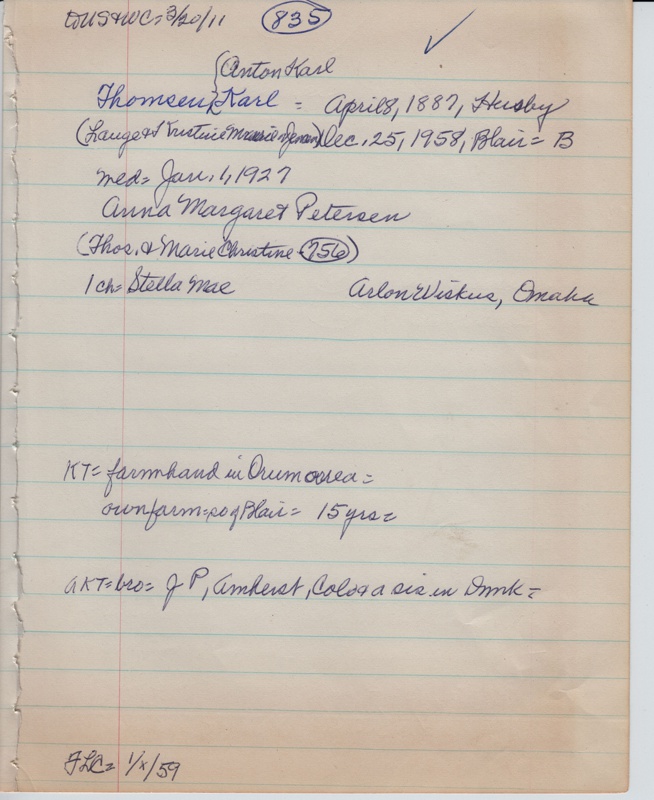 DUS&WC=3/20/11 835
{Anton Karl
Thomsen, {Karl = April 8, 1887, Husby
(Lauge & Kristine Marie Jensen) Dec. 25, 1958, Blair = B
med= Jan. 1, 1927
Anna Margaret Petersen
(Thos. & Marie Christine - 756)
1 ch= Stella Mae Arlon Wiskus, Omaha
KT= farmhand in Orum area=
own farm=so of Blair= 15 yrs=
AKT=bro= J P, Amherst, Colo & a sis in Dmk=
FLC= 1/x/59